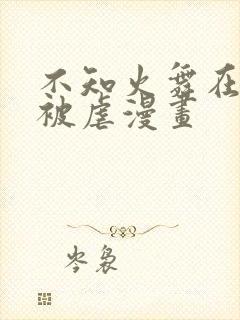 不知火舞在
被虐漫畫
岑裊